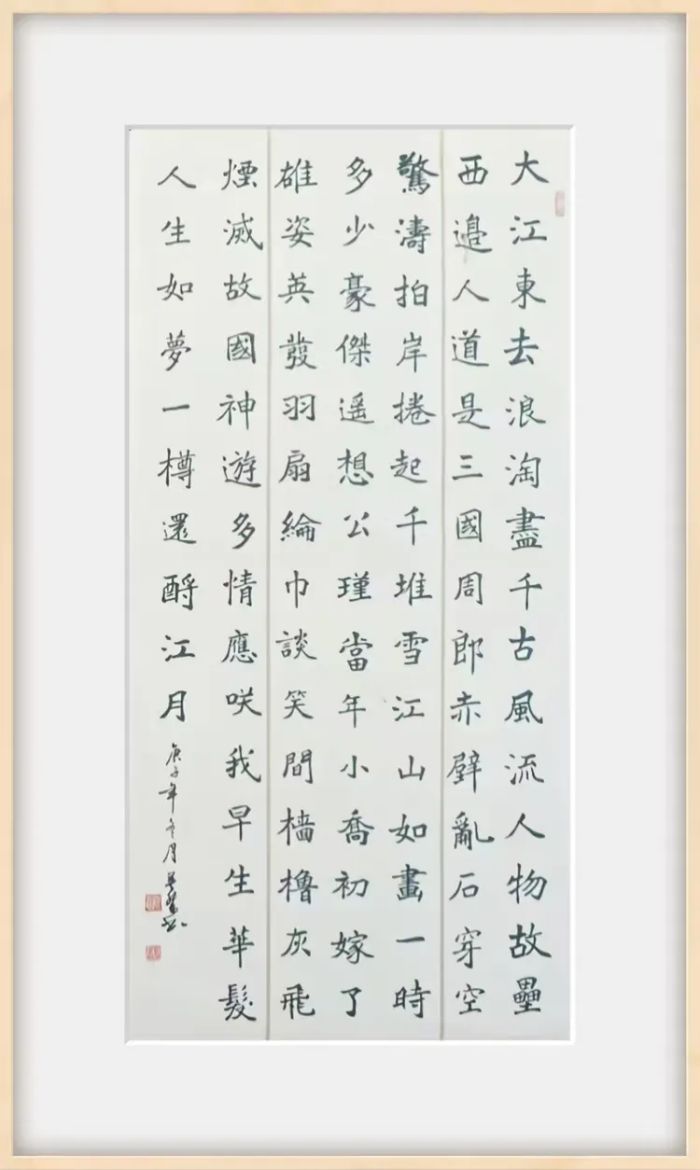 大江東去浪淘盡千古風流人物故壘
西邉人道是三國周郎赤壁亂石穿空
驚濤拍岸捲起千堆雪江山如畫一時
多少豪傑遥想公瑾當年小喬初嫁了
雄姿英發羽扇綸巾談笑間檣櫓灰飛
煙滅故國神遊多情應咲我早生華髮
人生如夢一樽還酹江月
庚子年冬月